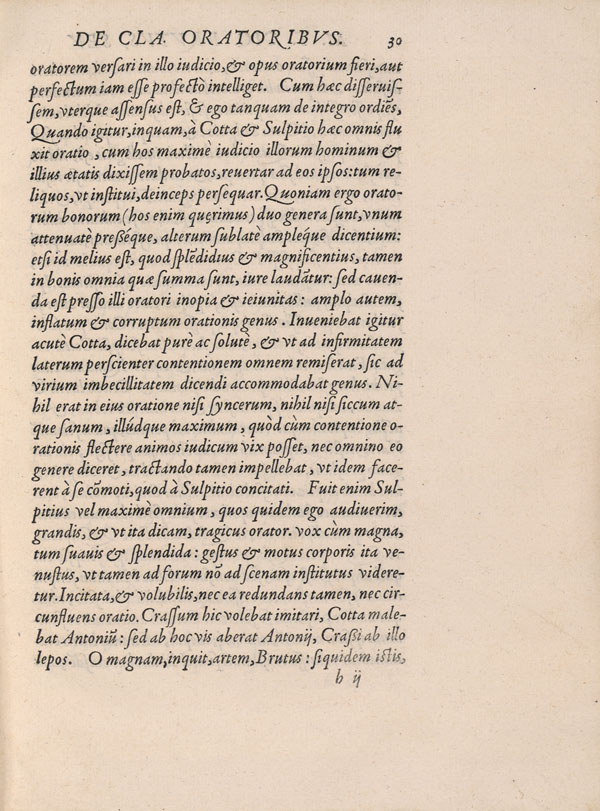 DE CLA. ORATORIBVS. 30
oratorem versari in illo iudicio,& opus oratorium fieri,aut
perfectum iam esse profectò intelliget. Cum hæc disseruis-
sem,vterque assensus est, & ego tanquam de integro ordiẽs,
Quando igitur,inquam,à Cotta & Sulpitio hæc omnis flu
xit oratio ,cum hos maximè iudicio illorum hominum &
illius ætatis dixissem probatos,reuertar ad eos ipsos:tum re-
liquos,vt institui,deinceps persequar.Quoniam ergo orato-
rum bonorum (hos enim quęrimus) duo genera sunt,vnum
attenuatè presséque, alterum sublatè ampleque dicentium:
etsi id melius est, quod splẽdidius & magnificentius, tamen
in bonis omnia quæ summa sunt, iure laudãtur: sed cauen-
da est presso illi oratori inopia & ieiunitas: amplo autem,
inflatum & corruptum orationis genus . Inueniebat igitur
acutè Cotta, dicebat purè ac solutè , & vt ad infirmitatem
laterum perscienter contentionem omnem remiserat, sic ad
virium imbecillitatem dicendi accommodabat genus. Ni-
hil erat in eius oratione nisi syncerum, nihil nisi siccum at-
que sanum, illúdque maximum, quòd cùm contentione o-
rationis flectere animos iudicum vix posset, nec omnino eo
genere diceret, tractando tamen impellebat, vt idem face-
rent à se cõmoti,quod à Sulpitio concitati. Fuit enim Sul-
pitius vel maximè omnium, quos quidem ego audiuerim,
grandis, & vt ita dicam, tragicus orator. vox cùm magna,
tum suauis & splendida : gestus & motus corporis ita ve-
nustus, vt tamen ad forum nõ ad scenam institutus videre-
tur.Incitata,& volubilis,nec ea redundans tamen, nec cir-
cunfluens oratio. Crassum hic volebat imitari, Cotta male-
bat Antoniũ : sed ab hoc vis aberat Antonij, Crassi ab illo
lepos. O magnam,inquit,artem,Brutus : siquidem istis,
h ij